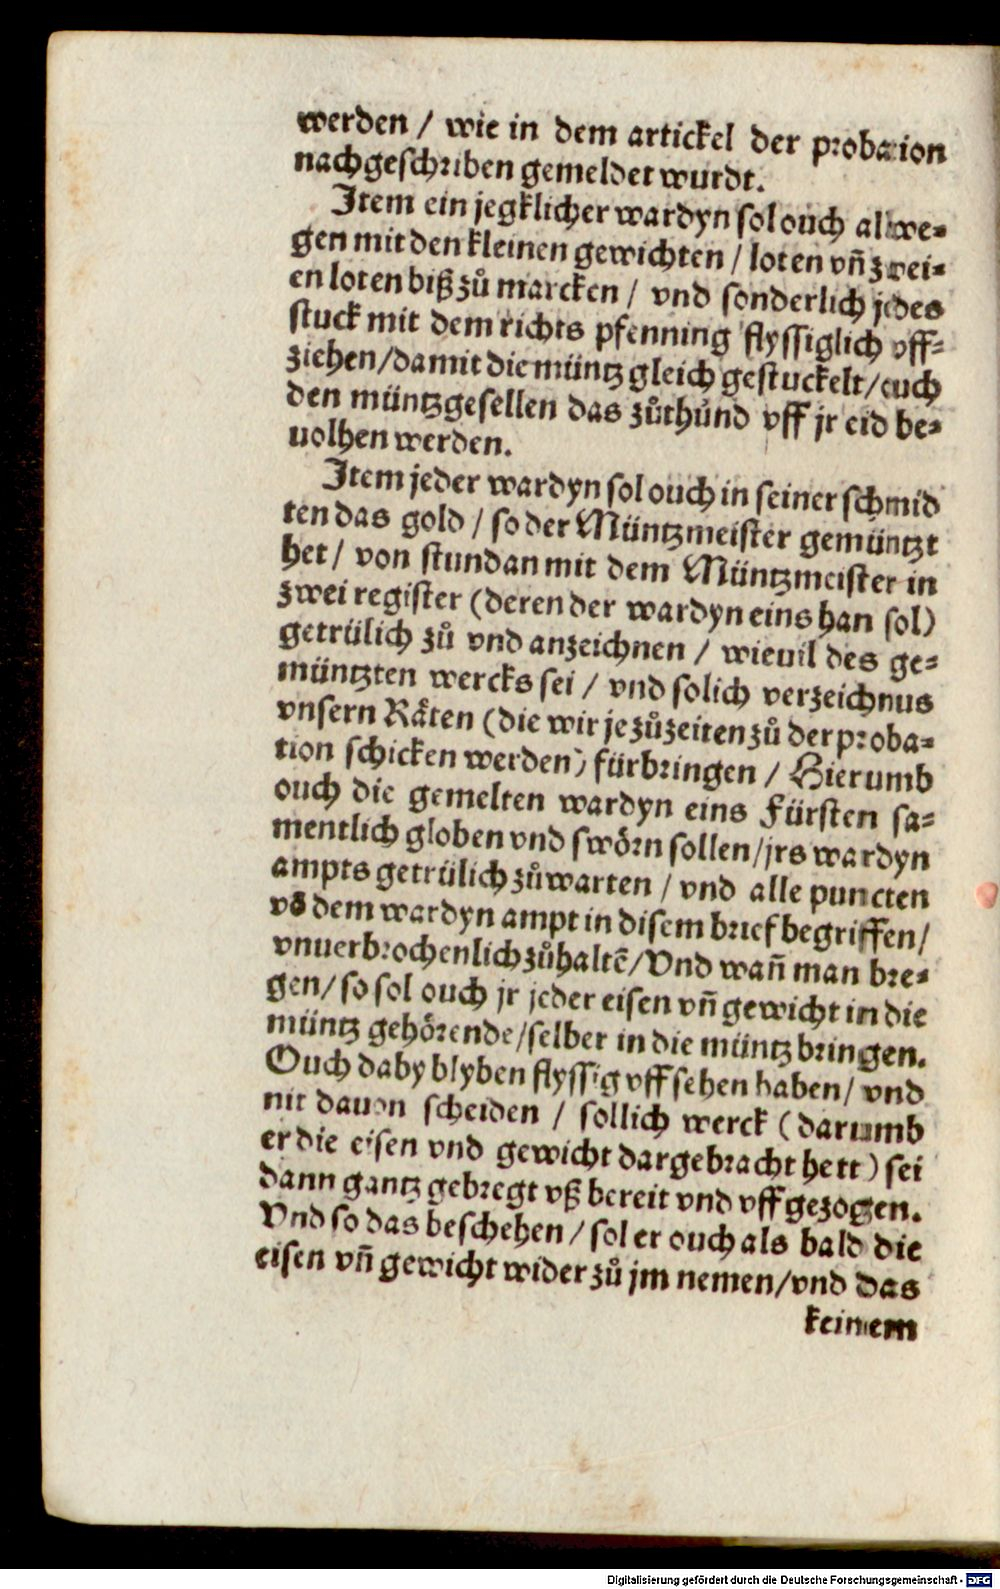 werden / wie in dem artickel der probation
nachgeschriben gemeldet wurdt.
Item ein jegklicher wardyn sol ouch allwe=
gen mit den kleinen gewichten / loten vñ zwei=
en loten biß zů marcken / vnd sonderlich jedes
stuck mit dem richts pfenning flyssiglich vff=
ziehen/damit die müntz gleich gestuckelt/ouch
den müntzgesellen das zůthůnd vff jr eid be=
uolhen werden.
Item jeder wardyn sol ouch in seiner schmid
ten das gold / so der Müntzmeister gemüntzt
het/ von stundan mit dem Müntzmeister in
zwei register (deren der wardyn eins han sol)
getrülich zů vnd anzeichnen / wieuil des ge=
müntzten wercks sei / vnd solich verzeichnus
vnsern Räten (die wir je zůzeiten zů der proba=
tion schicken werden) fürbringen / Hierumb
ouch die gemelten wardyn eins Fürsten sa=
mentlich globen vnd swörn sollen/jrs wardyn
ampts getrülich zůwarten / vnd alle puncten
võ dem wardyn ampt in disem brief begriffen/
vnuerbrochenlich zůhaltẽ/Vnd wañ man bre=
gen/ so sol ouch jr jeder eisen vñ gewicht in die
müntz gehörende/selber in die müntz bringen.
Ouch daby blyben flyssig vffsehen haben/ vnd
nit dauon scheiden / sollich werck (darumb
er die eisen vnd gewicht dargebracht hett) sei
dann gantz gebregt vß bereit vnd vffgezogen.
Vnd so das beschehen / sol er ouch als bald die
eisen vñ gewicht wider zů jm nemen/vnd das
keinem
Digitalisierung gefördert durch die Deutsche Forschungsgemeinschaft - DFG